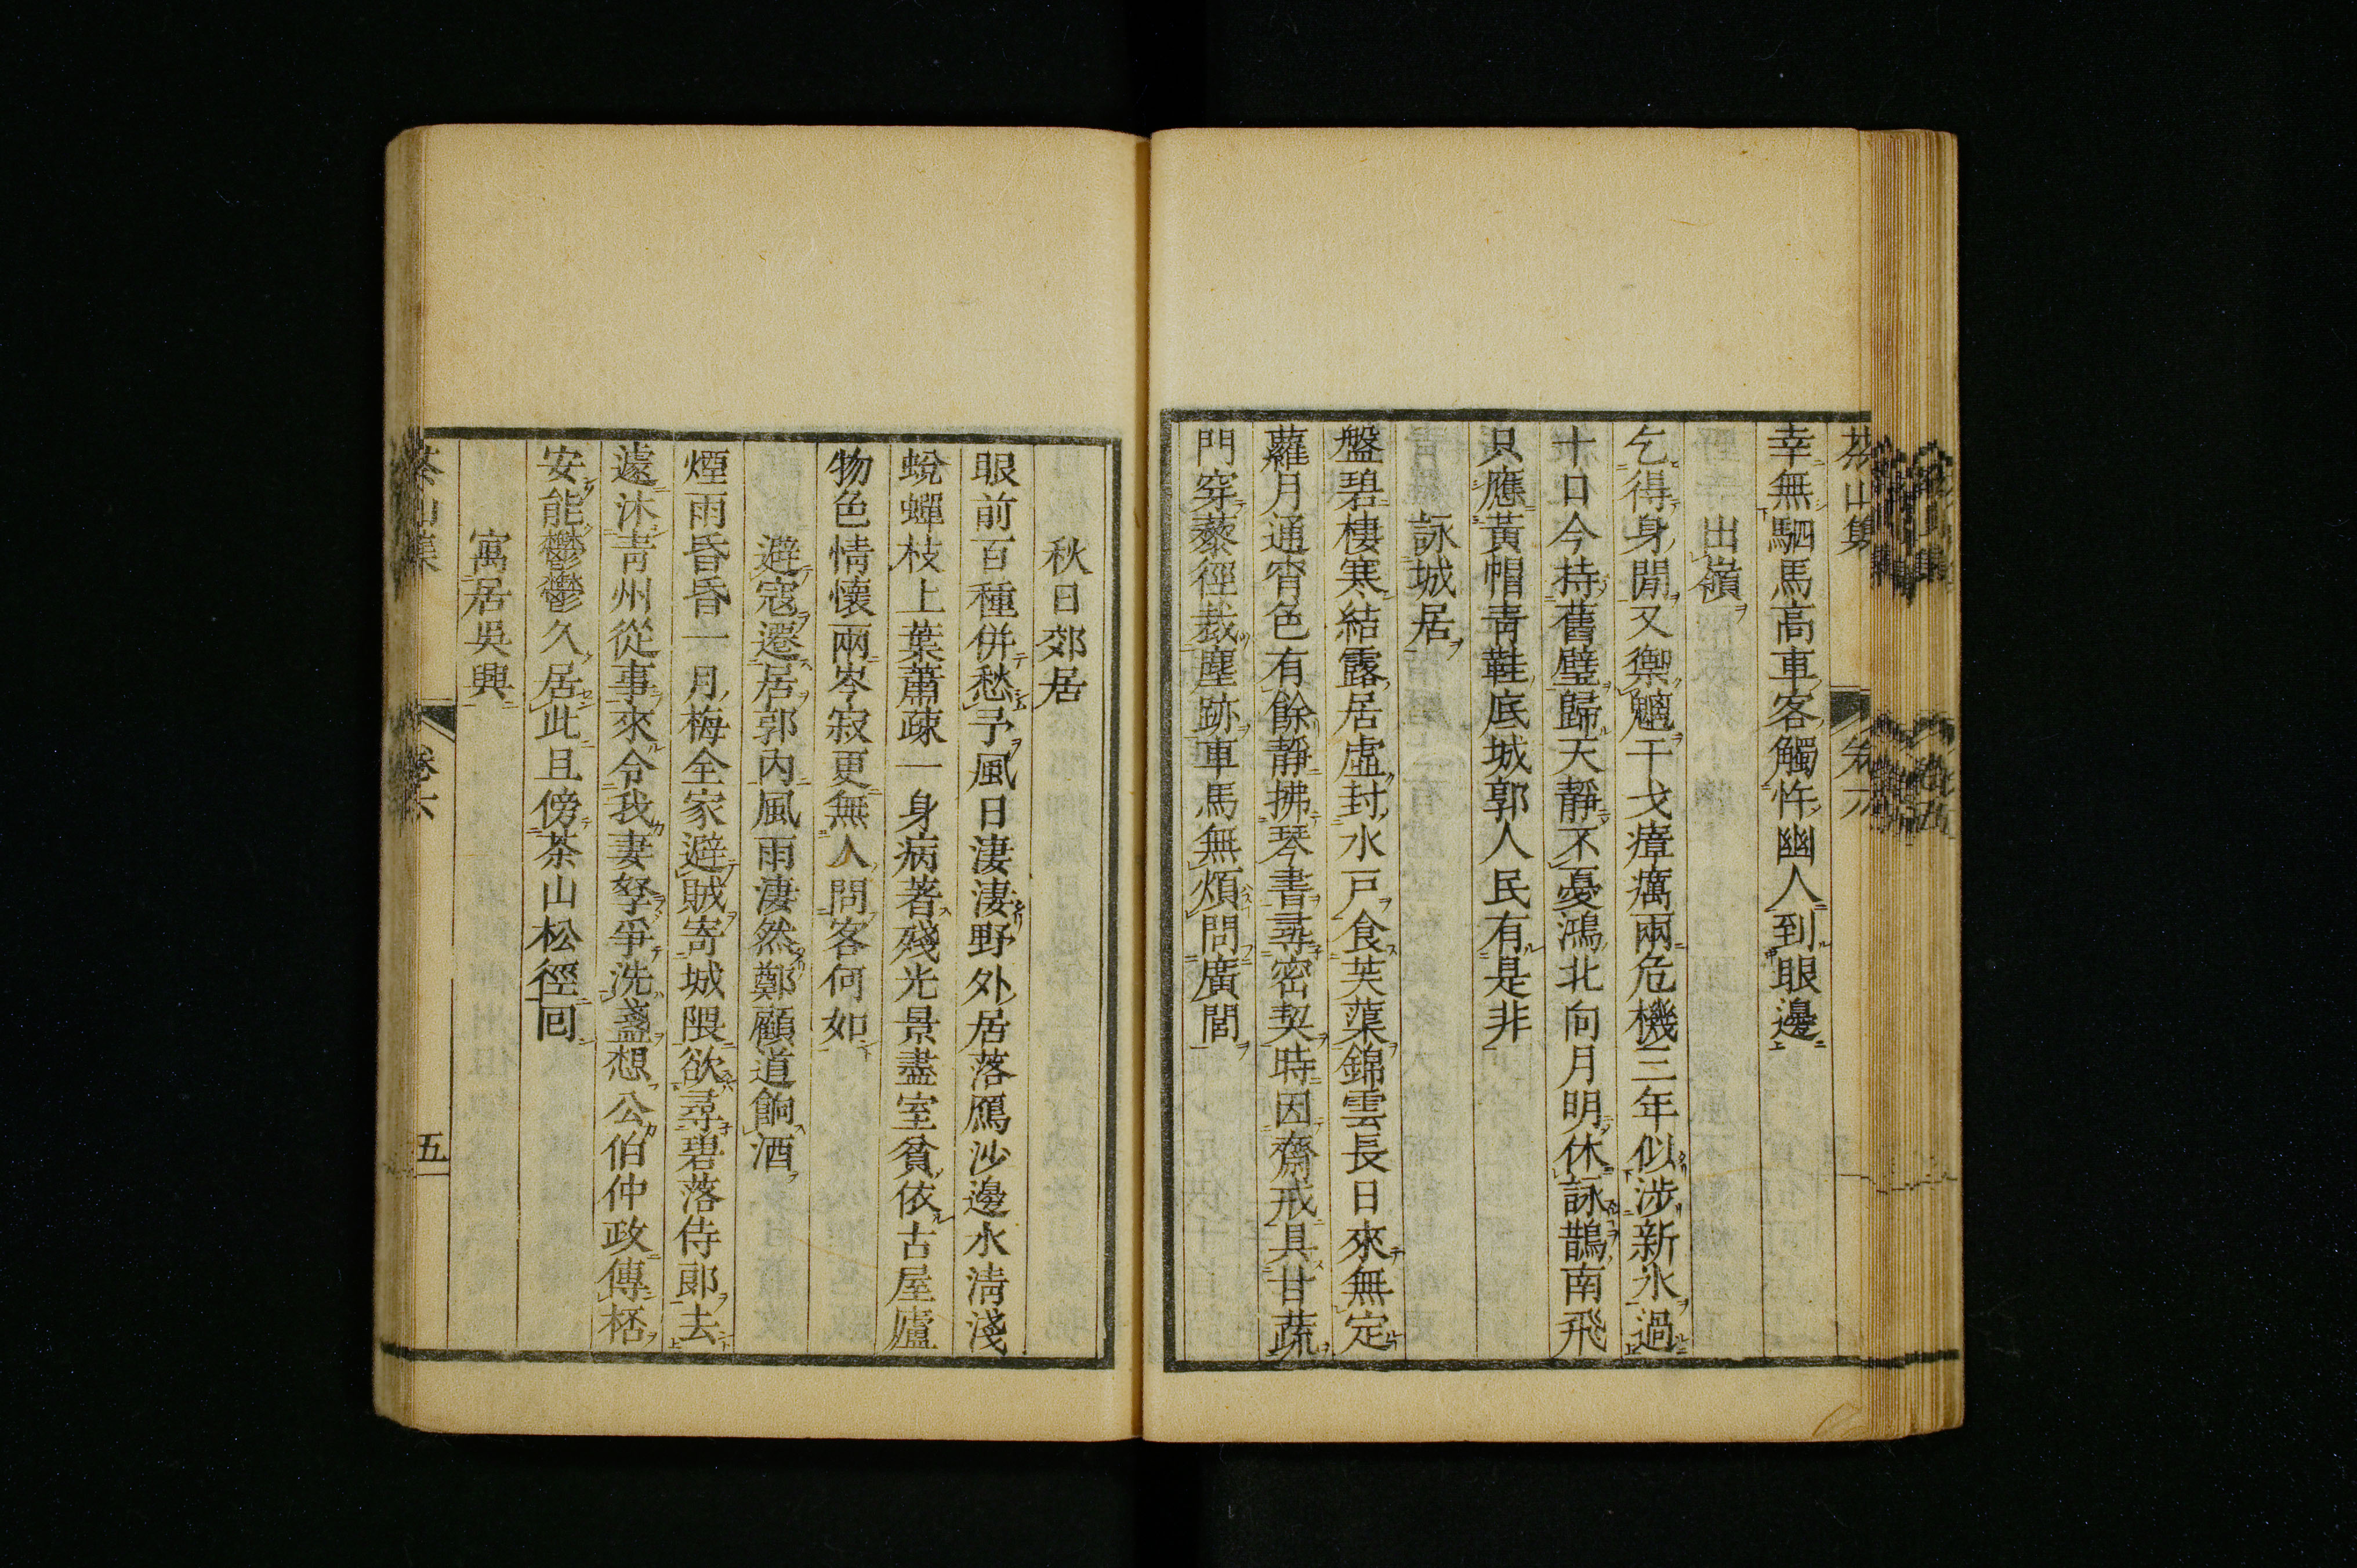 茶山集
幸無駟馬高車客觸忤幽人到眼邊
出嶺
乞得身閒又禦魑干戈瘴癘兩危機三年似涉新氷過
十口今持舊璧歸天靜不憂鴻北向月明休詠鵲南飛
只應黃帽靑鞋底城郭人民有是非
詠城居
盤碧棲寒結露居虛封水戸食芙蕖錦雲長日來無定
蘿月通宵色有餘靜拂琴書尋密契時因齋戒具甘蔬
門穿藜徑裁塵跡車馬無煩問廣閭
秋日郊居
眼前百種併愁予風日淒淒野外居落鴈沙邊水淸淺
蛻蟬枝上葉蕭疎一身病著殘光景盡室貧依古屋廬
物色情懷兩岑寂更無人問客何如
避寇遷居郭內風雨淒然鄭顧道餉酒
煙雨昏昏一月梅全家避賊寄城隈欲尋碧落侍郞去
遽沐靑州從事來令我妻孥爭洗盞想公伯仲政傳桮
安能鬱鬱久居此且傍茶山松徑回
寓居吳興
茶山集
卷六
五